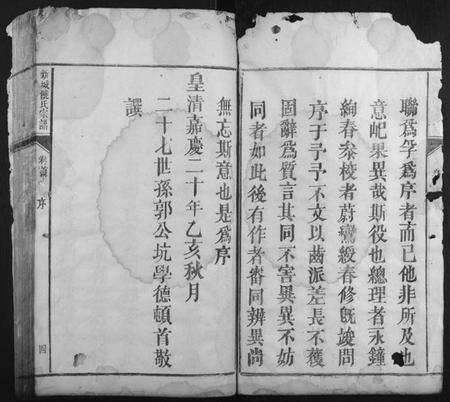 聯爲孚爲序者而已他非所及也
意屺果異哉斯役也總理者永鐘
絢春叅校者蔚鸞綬春修旣竣問
序于予予不文以齒派差長不獲
固辭爲質言其同不害異異不妨
同者如此後有作者審同辨異尚
無忘斯意也是爲序
皇清嘉慶二十年乙亥秋月
二十七世孫郭公坑學德頓首敬
譔
新城氏宗譜
卷首
序
四